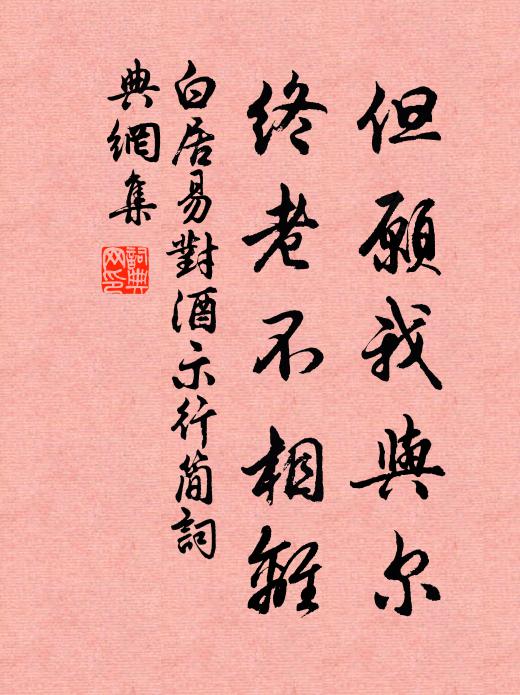 但願我與尔
終老不相離
白居易對酒示行簡詞
典網集
詞典網印